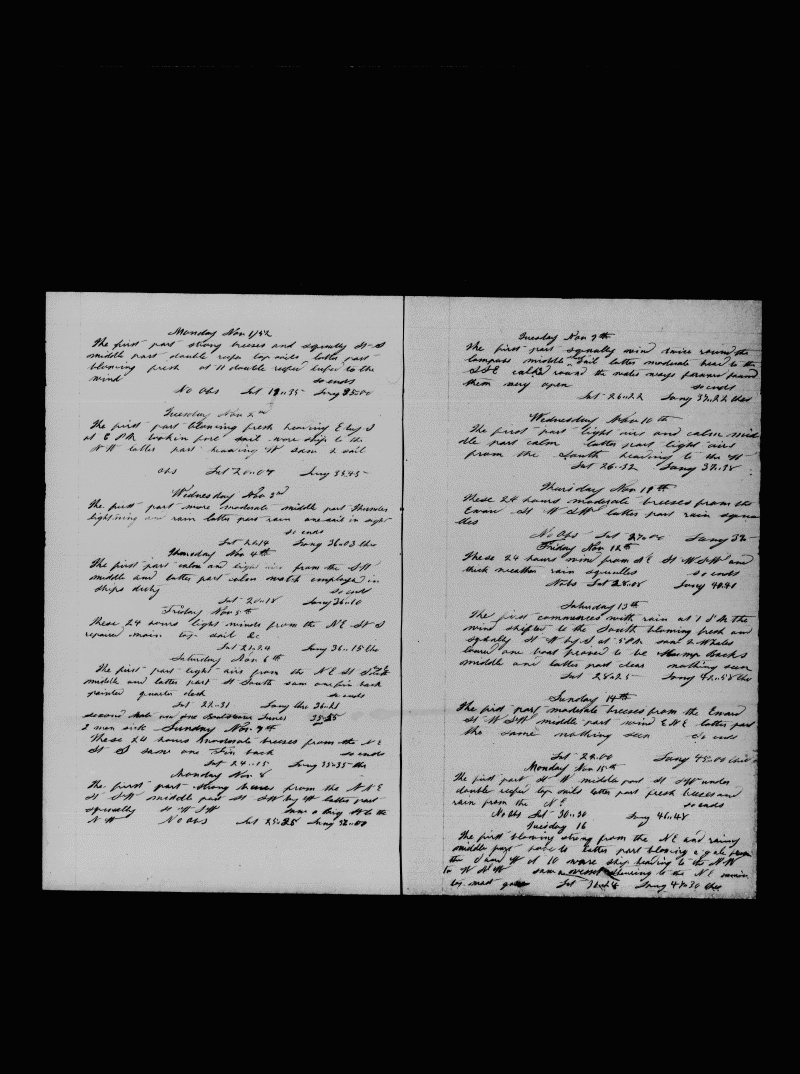 Monday Nov 1/52
The first part strong breezes and squally St S
middle part double reefer top sails latter part
blowing fresh at 11 double reefer to the
wind so ends
No Obs Lat 19..35 Long 35.00
Tuesday Nov 2nd
The first part blowing fresh heading E by S
at 6 PM took in fore sail wore ship to the
NW latter part heading W saw 2 sail
obs Lat 20..07 Long 35.45
Wednesday Nov 3rd
The first part more moderate middle part Thunder
lightning and rain latter part rain one sail in sight
so ends
Lat 20.14 Long 36..03
Thursday Nov 4th
The first part calm and light airs from the SW
middle and latter part calm watch employed in
ships duty so ends
Lat 20..18 Long 36..10
Friday Nov 5th
These 24 hours light winds from the NE St S
repaired main top sail &c
Lat 21..24 Long 36..15
Saturday Nov. 6th
The first part light airs from the NE St
middle and latter part St South saw one fin back
painted quarter deck so ends
Lat 22..31 Long 36..21
second Mate and
2 men sick Sunday Nov. 7th
These 24 hours moderate breezes from the NE
St S saw one Fin back so ends
Lat 24..15 Long 35..35
Monday Nov. 8
The first part strong breezes from the NNE
St SW middle part St SW by W latter part
squally St WSW Saw a Brig to the
NW No Obs Lat 25..25 Long 36..00
Tuesday Nov 9th
The first part squally wind twice round the
compass middle latter moderate head to the
SSE round the
them very open so ends
Lat 26..22 Long 37..22
Wednesday Nov 10th
The first part light airs and calm mid
dle part calm latter part light airs
from the South heading to the W
Lat 26..32 Long 37..38
Thursday Nov 11th
These 24 hours moderate breezes from the
St WSW latter part rain squa
lles
No Obs Lat 27..00 Long 39
Friday Nov 12th
These 24 hours wind from NE St WSW and
thick weather rain squalles so ends
No obs Lat 28..08 Long 40.41
Saturday 13th
The first commences with rain at 1 PM the
wind shifted to the South blowing fresh and
squally St W by S at 5 PM saw 2 Whales
lowered one boat proved to be Hump Backs
middle and latter part clear nothing seen
Lat 28..25 Long 42..58
Sunday 14th
The first part moderate breeses from the
St WSW middle part wind ENE latter part
the same nothing seen So ends
Lat 29.00 Long 45..00
Monday Nov 15th
The first part St W middle part St SW under
double reefer top sails latter part fresh breezes and
rain from the NE so ends
No obs Lat 30..30 Long 46..48
Tuesday 16
The first blowing strong from the NE and rainy
middle part hove to latter part blowing a gale from
the S and W at 10 wore ship heading to the NW
to WNW saw a vessel steering to the NE main
top mast gone Lat Long 47..30